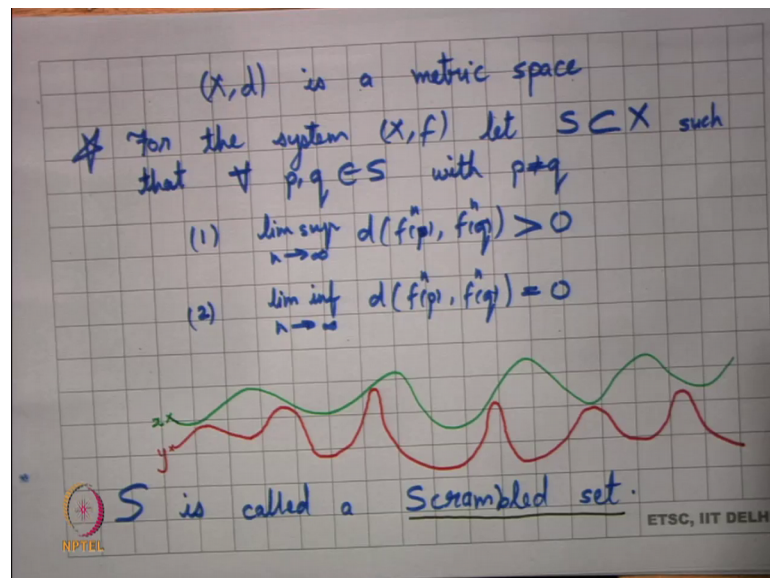 (X,d) is a metric space
☆ For the system (X,f) let S⊂X such
that ∀ p,q ∈ S with p≠q
(1) lim sup d(fⁿ(p), fⁿ(q)) > 0
n→∞
(2) lim inf d(fⁿ(p), fⁿ(q)) = 0
n→∞
x
y
S is called a Scrambled set.
NPTEL
ETSC, IIT DELH